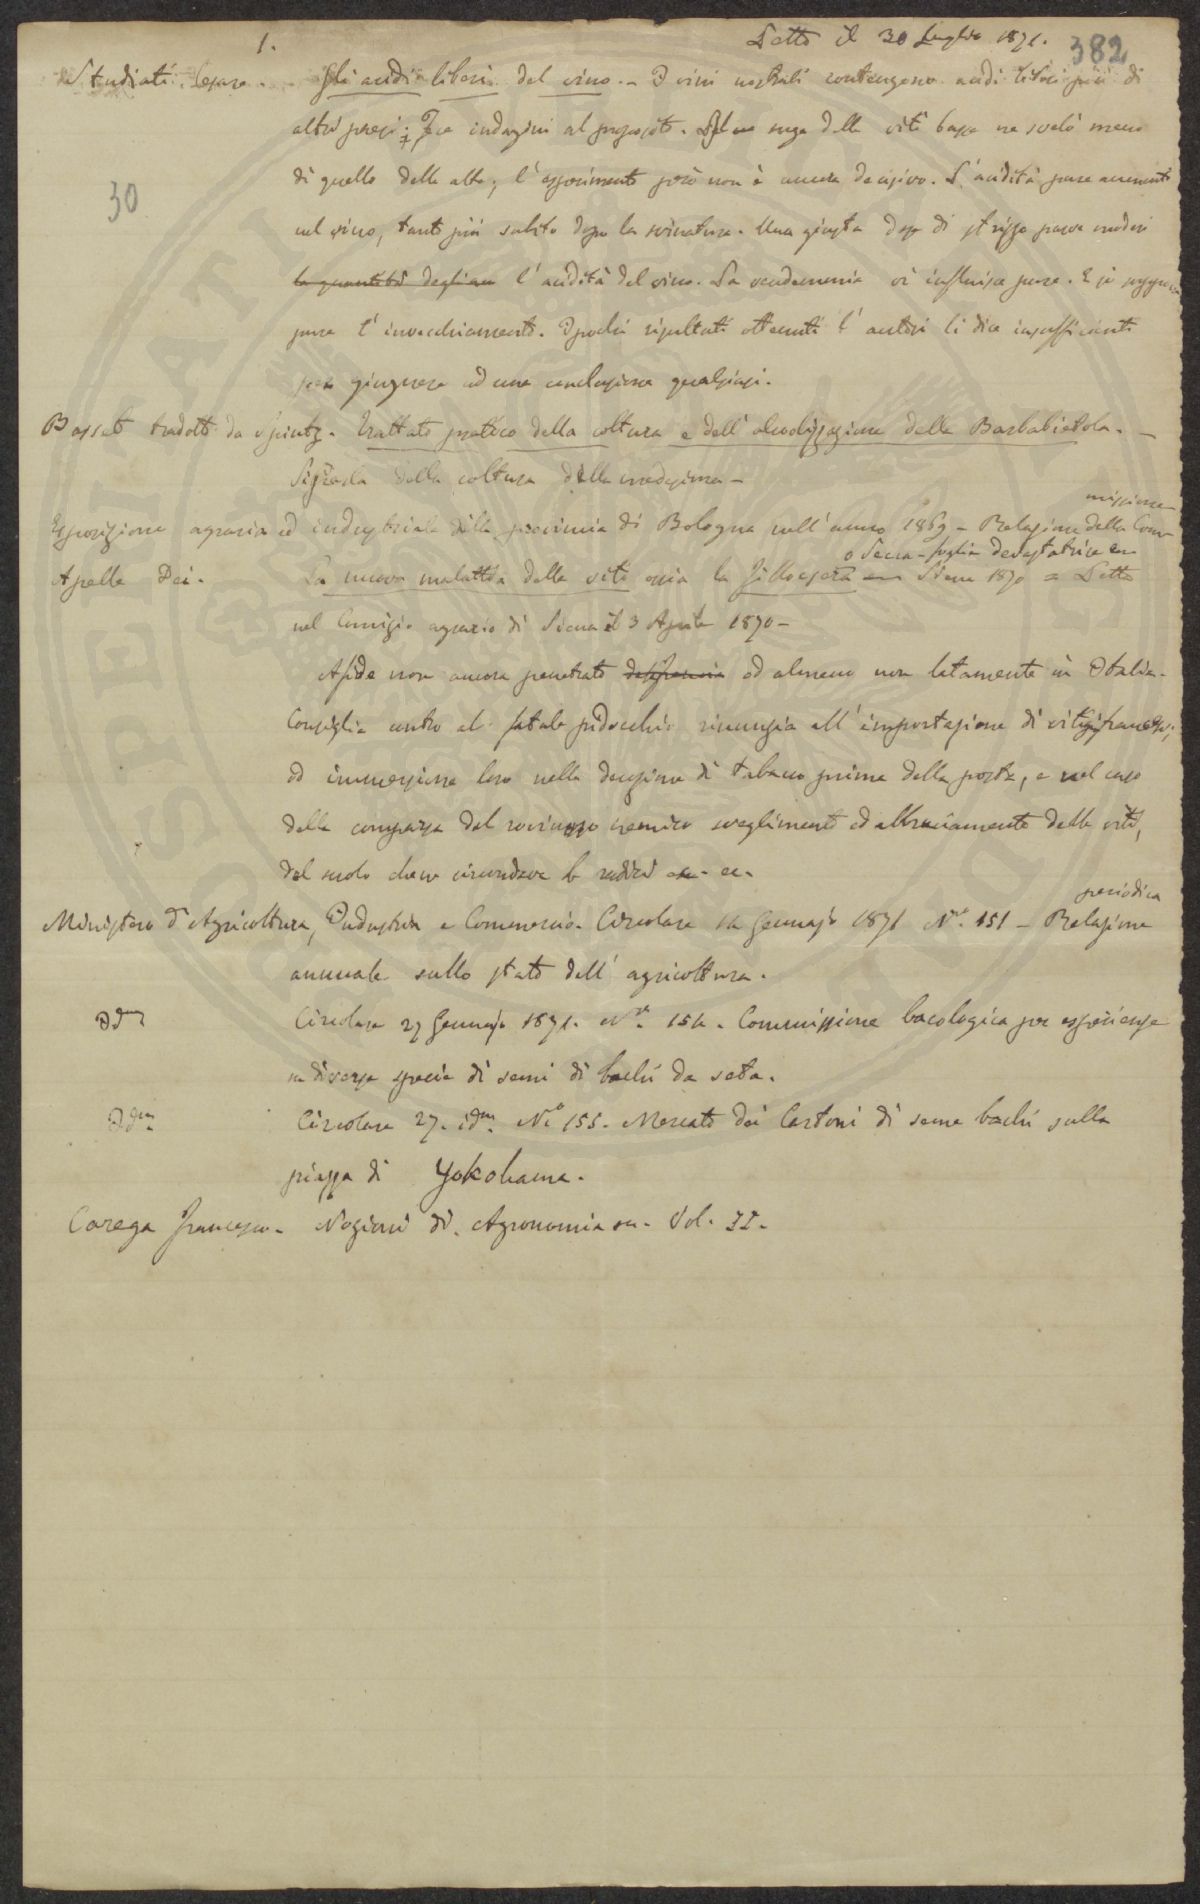 1. Letto il 30 Luglio 1871. 382
Studiati Cesare. Gli acidi liberi del vino. - I vini nostrali contengono acidi liberi più di
altri paesi; Fa indagini al proposito. L'uva delle viti basse ne svelò meno
di quello delle alte; l'esperimento però non è ancora decisivo. L'acidità pare aumenti
30
nel vino, tanto più subito dopo la svinatura. Una giusta dose di strizzo pare moderi
la quantità degli l'acidità del vino. La vendemmia vi influisce pure. E si
pure l'invecchiamento. I pochi risultati ottenuti l'autore li dice insufficienti
per giugnere ad una conclusione qualsiasi.
Basset tradott. da Spintz. Trattato pratico della coltura e dell'alcolizzazione della Barbabietola. -
della coltura della medesima -
missione
Esposizione agraria ed industriale della provincia di Bologna nell'anno 1869 - Relazione della Com-
o Secca-foglia devastatrice ec
Apelle Dei. La nuova malattia delle viti ossia la Fillossera Siena 1870 = Letta
nel Comizio agrario di Siena il 3 Aprile 1870 -
Afide non ancora penetrato od almeno non latamente in Italia.
Consiglia contro al fatale pidocchio rinunzia all'importazione di vitigni francesi,
od immersione loro nella decozione di tabacco prima della posta, e nel caso
della comparsa del rovinoso nemico sveglimento ed abbruciamento delle viti,
del suolo che ne circondava le radici ec. ec.
periodica
Ministero d'Agricoltura, Industria e Commercio. Circolare 14 Gennajo 1871 N.o 151 - Relazione
annuale sullo stato dell'agricoltura.
Idm Circolare 27 Gennajo 1871. N.o 154. Commissione bacologica per esperienze
su diverse specie di semi di bachi da seta.
Idm Circolare 27. idm. N.o 155. Mercato dei Cartoni di seme bachi sulla
piazza di Yokohama.
Carega Francesco. Nozioni di Agronomia ec. Vol. II.